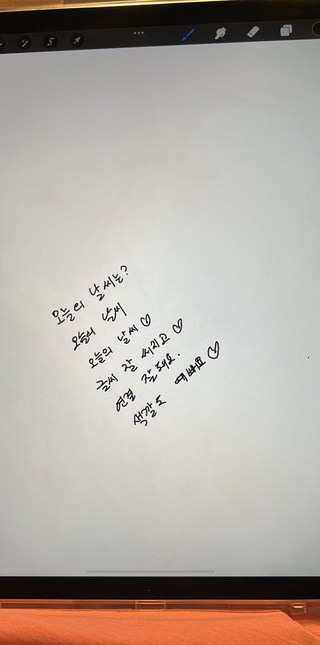 오늘의 날씨는?
오늘의 날씨
오늘의 날씨♡
글씨 잘 써지고♡
연결 잘돼요.
색깔도 예뻐요♡